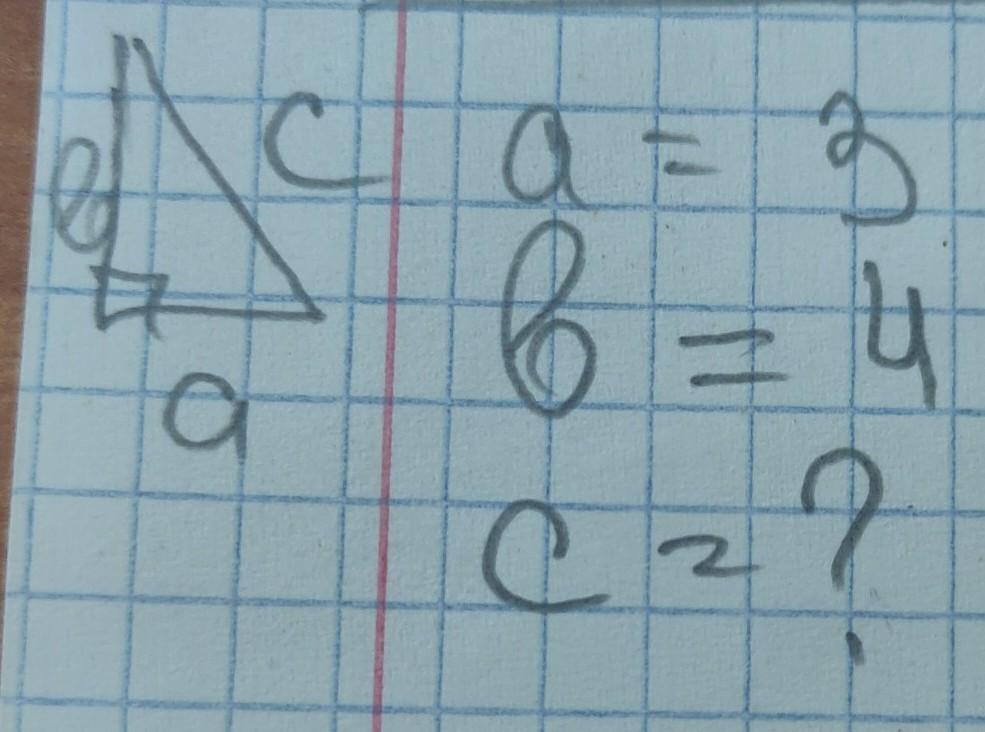 в
c
a
a = 3
в = 4
c = ?